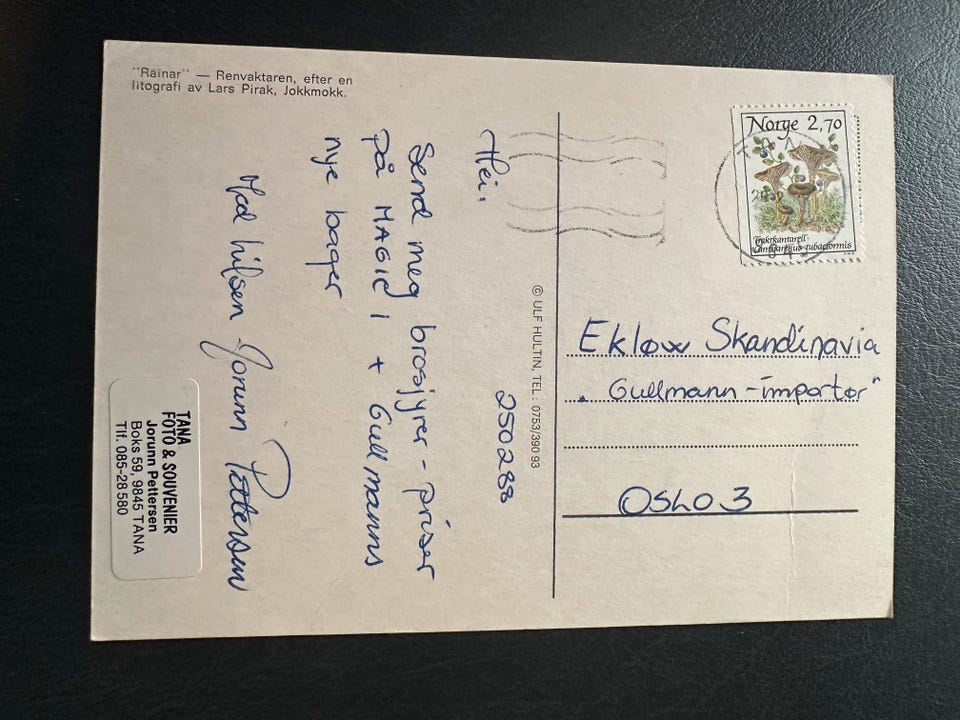 "Rainar" — Renvaktaren, efter en
litografi av Lars Pirak, Jokkmokk.
250288
Hei.
Send meg brosjyrer - priser
på MAGIC 1 + Gullmanns
nye bager
Med hilsen Jorunn Pettersen
TANA
FOTO & SOUVENIER
Jorunn Pettersen
Boks 59, 9845 TANA
Tlf. 085-28580
© ULF HULTIN, TEL: 0753/390 93
Norge 2,70
Traktkantarell
Cantharellus tubaeformis
Ekløw Skandinavia
"Gullmann-importør"
OSLO 3